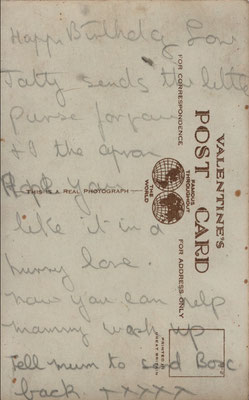 Happy Birthday Love
Tatty sends the little
purse for you
& I the apron
Hope you
like it in a
hurry love.
now you can help
mammy wash up
Tell mum to send Box
back. +++++
VALENTINE'S
POST CARD
FAMOUS THROUGHOUT
THE WORLD
FOR CORRESPONDENCE
FOR ADDRESS ONLY
THIS IS A REAL PHOTOGRAPH
PRINTED IN
GREAT BRITAIN